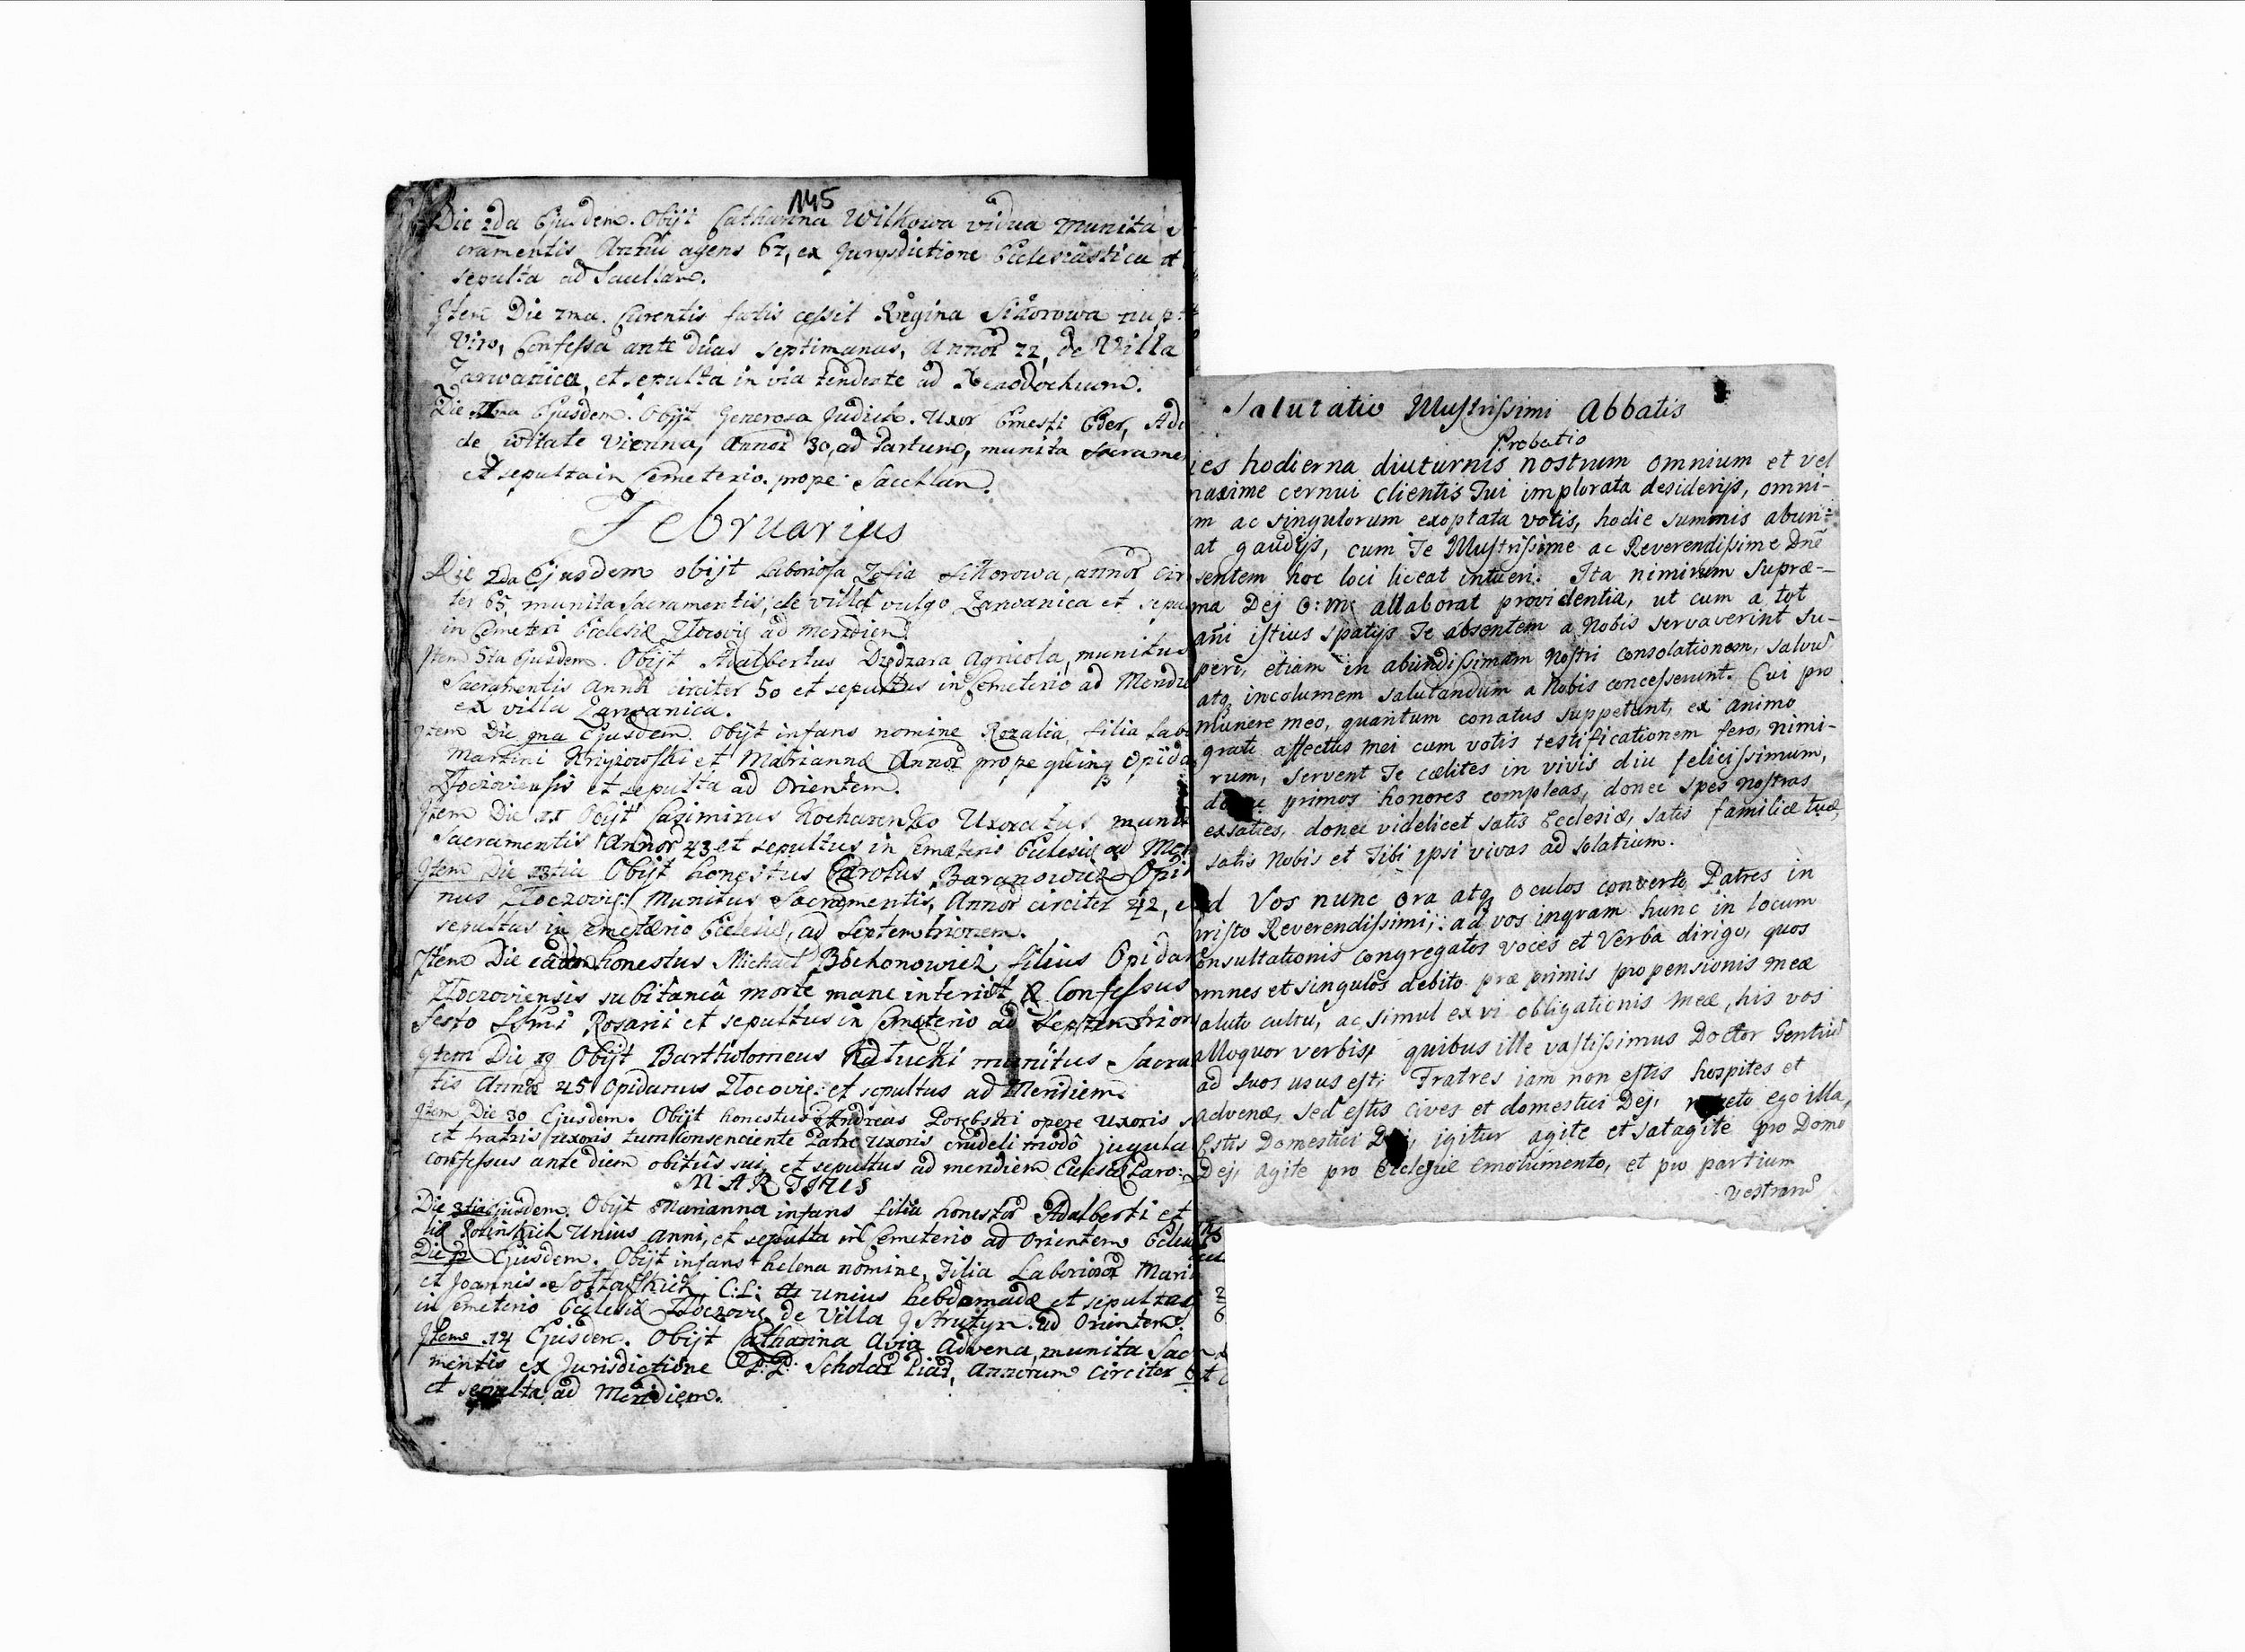 145
Die 2da Ejusdem. Obijt Catharina Wilkowa vidua munita
cramentis Annū agens 67, ex Jurysdictione Ecclesiastica et
sepulta ad Sacellum.
Item Die 7ma. Curentis fatis cessit Regina Sikorowa nup:
Viro, Confessa ante duas septimanas, Annor 22, de Villa
Zarwanica, et sepulta in via tendente ad Xenodochium.
Die Ejusdem. Obijt Generosa Judith. Uxor Ernesti Eder,
de civitate Vienna, Annor 30, ad Partum, munita Sacrame
et sepulta in Cemeterio prope Sacellum.
Februarius
Die 2da Ejusdem obijt Laboriosa Zofia Sikorowa, annor cir
ter 65, munita Sacramentis, de villa vulgo Zarwanica et sepu
in Cemeteri Ecclesiæ Złocovię ad meridiem.
Item 5ta Ejusdem. Obijt Adalbertus Dzędzara Agricola, munitus
Sacramentis Annor circiter 50 et sepultus in Cemeterio ad Meridie
ex villa Zarwanica.
Item Die 9na Ejusdem. Obijt infans nomine Rozalia, filia Labo
Martini et Mariannæ Annor prope quinq opida
Złoczoviensis et sepulta ad Orientem.
Item Die 11 Obijt Casimirus Kocharenko Uxoratus muni
Sacramentis Annor 43 et sepultus in Cemeterio Ecclesię ad Mer
Item Die 13tia Obijt honestus Carolus Baranowicz Opi
nus Złoczovię: Munitus Sacramentis, Annor circiter 42, e
sepultus in Cemeterio Ecclesiæ, ad Septemtrionem.
Item Die eadem honestus Michael Bochonowicz filius Opidan
Złoczoviensis subitanea morte mane interijt, & Confessus
festo SSmi Rosarii et sepultus in Cemeterio ad Septemtrion
Item Die 19 Obijt Bartholomeus Kałucki munitus Sacra
tis Annor 45 Opidanus Złocovię: et sepultus ad Meridiem.
Item Die 30 Ejusdem. Obijt honestus Andreas Porębski opere uxoris
et fratris uxoris tum consenciente Patre uxoris crudeli modô jugula
confessus ante diem obitûs sui, et sepultus ad meridiem Ecclesiæ Paro:
MARTIUS
Die 3tia Ejusdem. Obijt Marianna infans filia honestor Adalberti et
liæ Rolinskich Unius anni, et sepulta in Cemeterio ad Orientem Eccles
Die 12 Ejusdem. Obijt infans helena nomine, Filia Laboriosor Mari
et Joannis C:L: unius hebdomadæ et sepulta
in Cemeterio Ecclesiæ Złoczovię de Villa Strutyn. ad Orientem.
Item 14 Ejusdem. Obijt Catharina Avia Advena, munita Sac
mentis ex Jurisdictione P:P: Scholar Piar, Annorum circiter
et sepulta ad Meridiem.
Salutatio Illustrissimi Abbatis
Probatio
ies hodierna diuturnis nostrum omnium et vel
maxime cernui clientis Tui implorata desiderijs, omni-
m ac singulorum exoptata votis, hodie summis abun:
at gaudijs, cum Te Illustrissime ac Reverendissime Dnē
sentem hoc loci liceat intueri. Ita nimirum Supræ-
ma Dej O:M: allaborat providentia, ut cum a tot
ani istius spatijs Te absentem a Nobis servaverint Su-
peri, etiam in abundissimam Nostri consolationem, salvū
atq incolumem salutandum a Nobis concesserunt. Cui pro
munere meo, quantum conatus suppetunt, ex animo
grati affectus mei cum votis testificationem fero, nimi-
rum, servent Te cælites in vivis diu felicissimum,
primos honores compleas, donec spes nostras
exsaties, donec videlicet satis Ecclesiæ, satis familiæ tuæ,
satis Nobis et Tibi ipsi vivas ad solatium.
d Vos nunc ora atq oculos converto Patres in
hristo Reverendissimi: ad vos inqvam hunc in locum
onsultationis congregatos voces et Verba dirigo, quos
omnes et singulos debito præ primis propensionis meæ
salute cultu, ac simul ex vi obligationis meæ, his vos
alloquor verbis, quibus ille vastissimus Doctor Gentiū
ad suos usus est: Fratres iam non estis hospites et
advenæ, sed estis cives et domestici Dej, ego illa,
Estis Domestici Dei, igitur agite et satagite pro Domo
Dej, agite pro Ecclesiæ emolumento, et pro partium
vestrarū